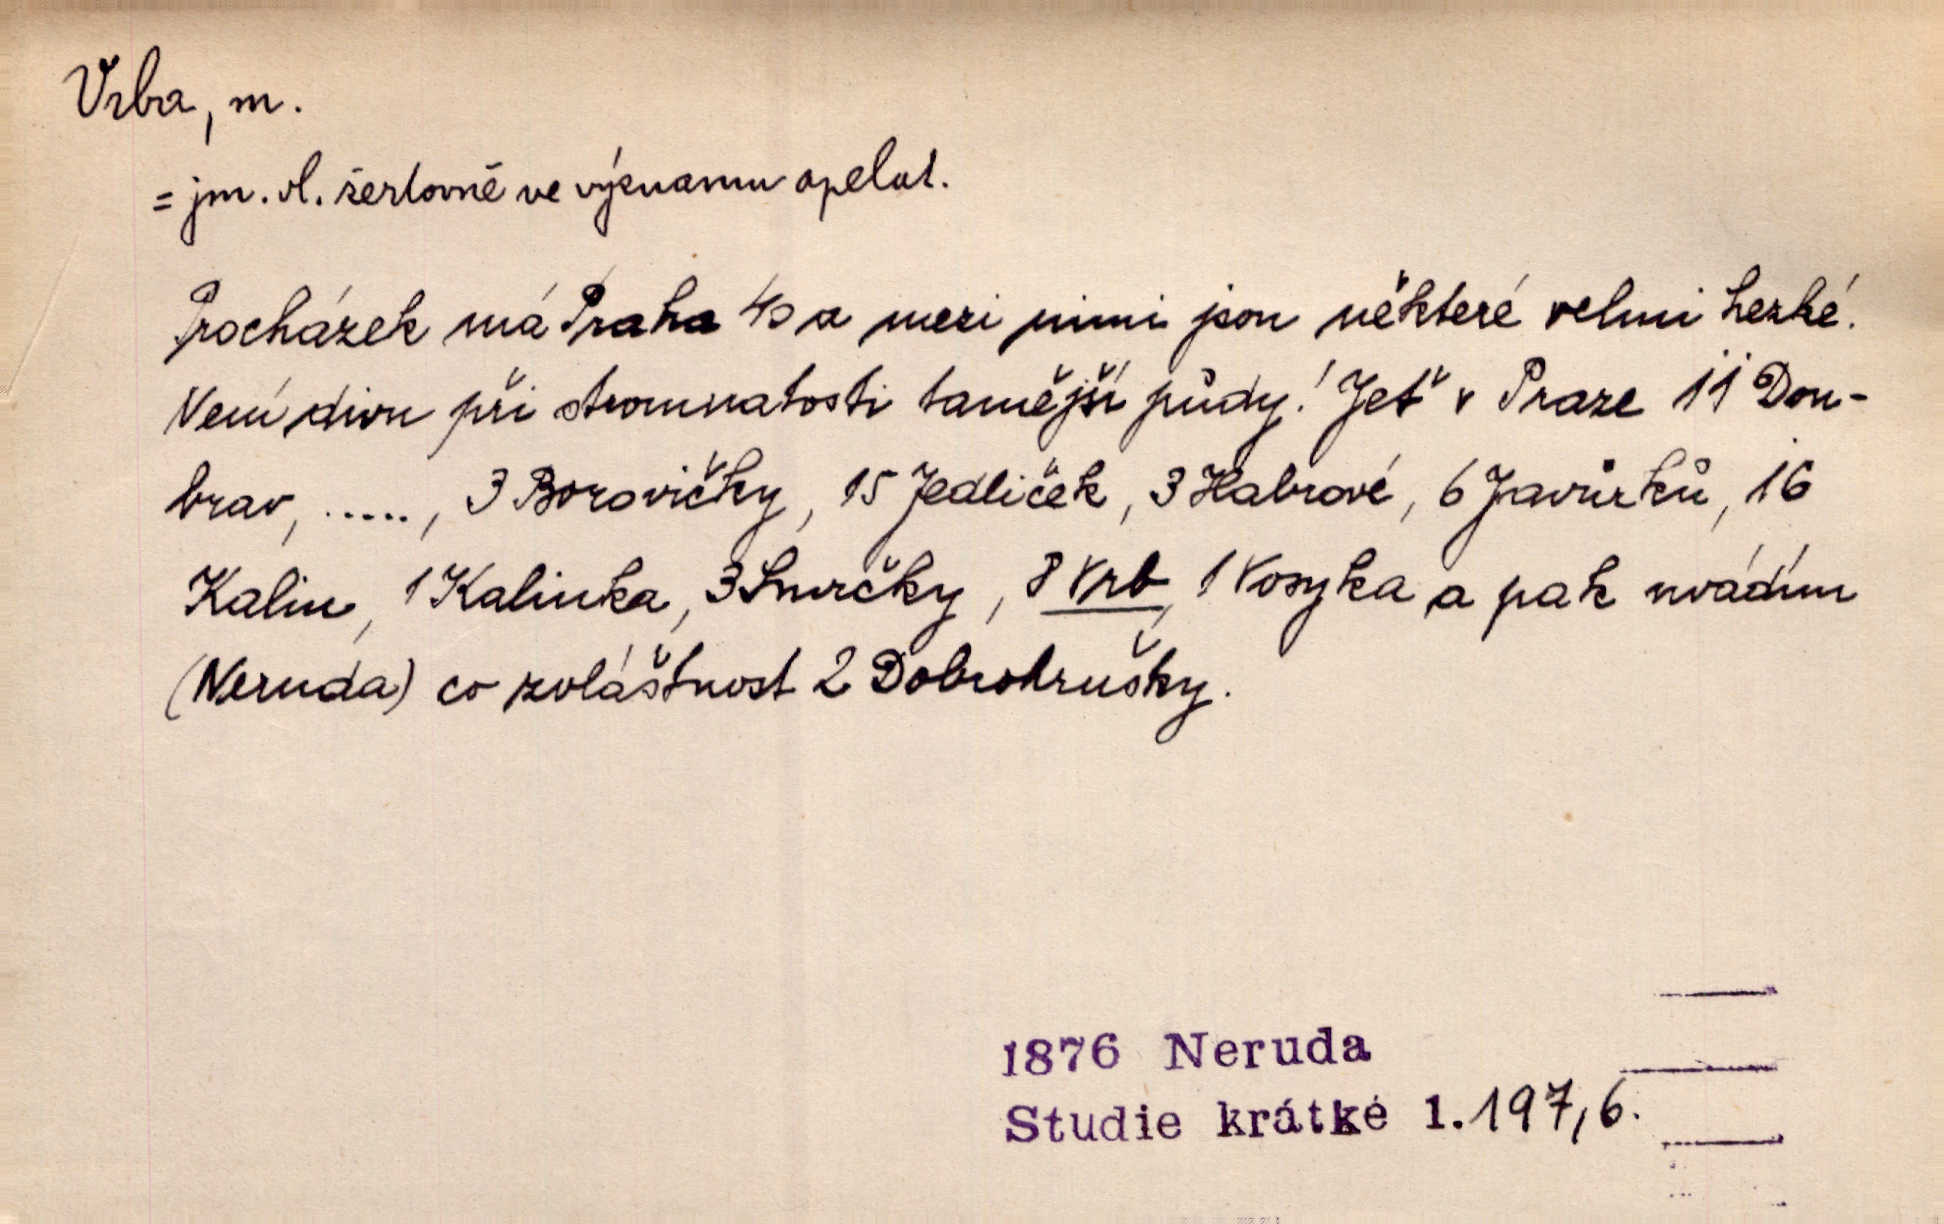 Vrba, m.
= jm. vl. žertovně ve významu apelat.
Procházek má Praha 40 a mezi nimi jsou některé velmi hezké.
Není divu při stromnatosti tamější půdy! Jeť v Praze 11 Dou-
brav, ....., 3 Borovičky, 15 Jedliček, 3 Habrové, 6 Javůrků, 16
Kalin, 1 Kalinka, 3 Smrčky, 8 Vrb, 1 Vosyka a pak uvádím
(Neruda) co zvláštnost 2 Dobrohrušky.
1876 Neruda
Studie krátké 1.197,6.